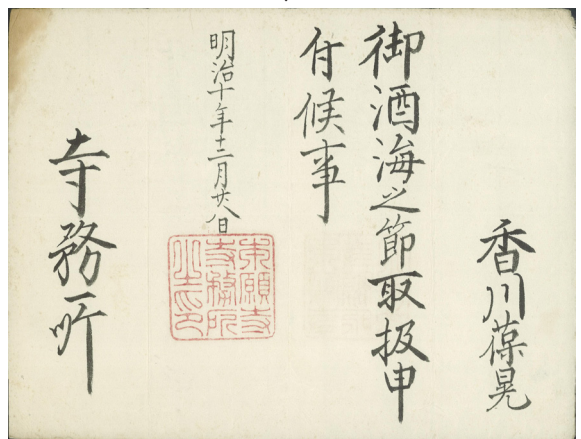 香川葆晃
御酒海之節取扱申
付候事
明治十年十二月廿八日
本願寺
寺務所
寺務所